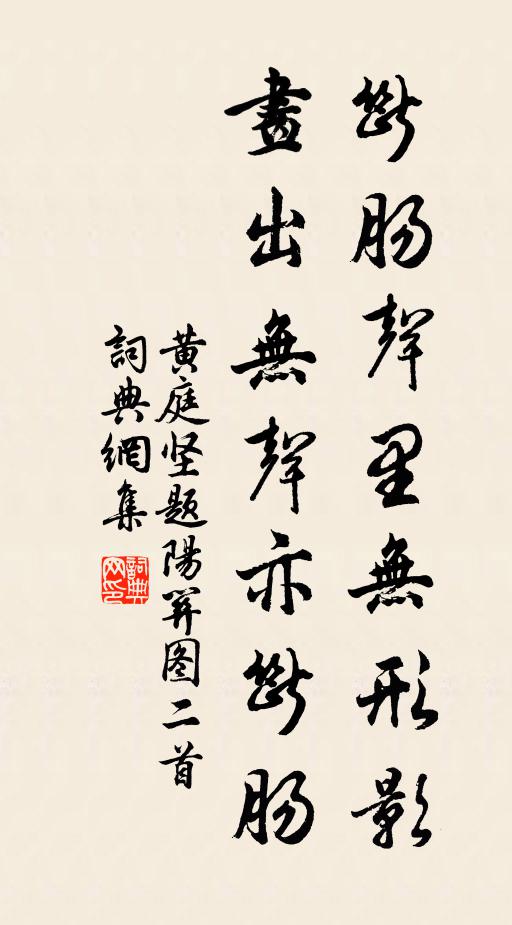 斷腸聲里無形影
畫出無聲亦斷腸
黄庭坚题陽関图二首
詞典網集
詞典网印